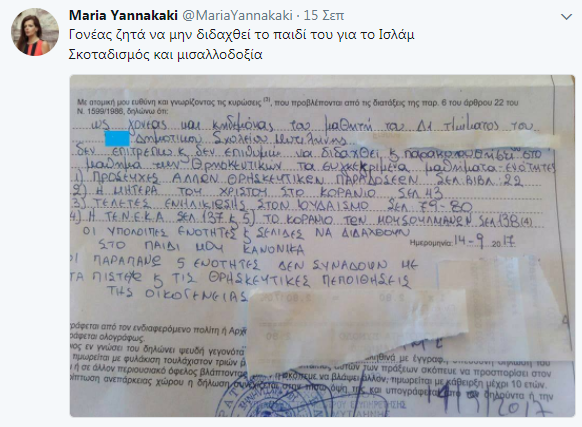 Maria Yannakaki @MariaYannakaki · 15 Σεπ
Γονέας ζητά να μην διδαχθεί το παιδί του για το Ισλάμ
Σκοταδισμός και μισαλλοδοξία
Με ατομική μου ευθύνη και γνωρίζοντας τις κυρώσεις (3), που προβλέπονται από τις διατάξεις της παρ. 6 του άρθρου 22 του
Ν. 1599/1986, δηλώνω ότι:
ως γονέας και κηδεμόνας του μαθητή του Δ1 τμήματος του
Δημοτικού Σχολείου Μυτιλήνης
δεν επιτρέπω κ δεν επιθυμώ να διδαχθεί ς παρακολουθήσει στο
μάθημα των Θρησκευτικών τα συγκεκριμένα μαθήματα-ενότητες
1) ΠΡΟΣΕΥΧΕΣ ΑΛΛΩΝ ΘΡΗΣΚΕΥΤΙΚΩΝ ΠΑΡΑΔΟΣΕΩΝ ΣΕΛ. ΒΙΒΛ. 22
2) Η ΜΗΤΕΡΑ ΤΟΥ ΧΡΙΣΤΟΥ ΣΤΟ ΚΟΡΑΝΙΟ ΣΕΛ 43
3) ΤΕΛΕΤΕΣ ΕΝΗΛΙΚΙΩΣΗΣ ΣΤΟΝ ΙΟΥΔΑΙΣΜΟ ΣΕΛ. 79-80
4) Η ΤΕΝΕΚΑ ΣΕΛ. 137 κ 5) ΤΟ ΚΟΡΑΝΙΟ ΤΩΝ ΜΟΥΣΟΥΛΜΑΝΩΝ ΣΕΛ 138 (4)
ΟΙ ΥΠΟΛΙΠΕΣ ΕΝΟΤΗΤΕΣ ς ΣΕΛΙΔΕΣ ΝΑ ΔΙΔΑΧΘΟΥΝ
ΣΤΟ ΠΑΙΔΙ ΜΟΥ ΚΑΝΟΝΙΚΑ
Ημερομηνία: 14-9 2017
ΟΙ ΠΑΡΑΠΑΝΩ 5 ΕΝΟΤΗΤΕΣ ΔΕΝ ΣΥΝΑΔΟΥΝ ΜΕ
ΤΑ ΠΙΣΤΕΥΩ ς ΤΙΣ ΘΡΗΣΚΕΥΤΙΚΕΣ ΠΕΠΟΙΘΗΣΕΙΣ
ΤΗΣ ΟΙΚΟΓΕΝΕΙΑΣ
γράφεται από τον ενδιαφερόμενο πολίτη ή Αρχ
γράφεται ολογράφως.
νος εν γνώσει του δηλώνει ψευδή γεγονότα
τιμωρείται με φυλάκιση τουλάχιστον τριών
ή σε άλλον περιουσιακό όφελος βλάπτοντας
πτωση ανεπάρκειας χώρου η δήλωση συνεχίζεται στην πίσω όψη της και υπογράφεται από τον δηλούντα ή την